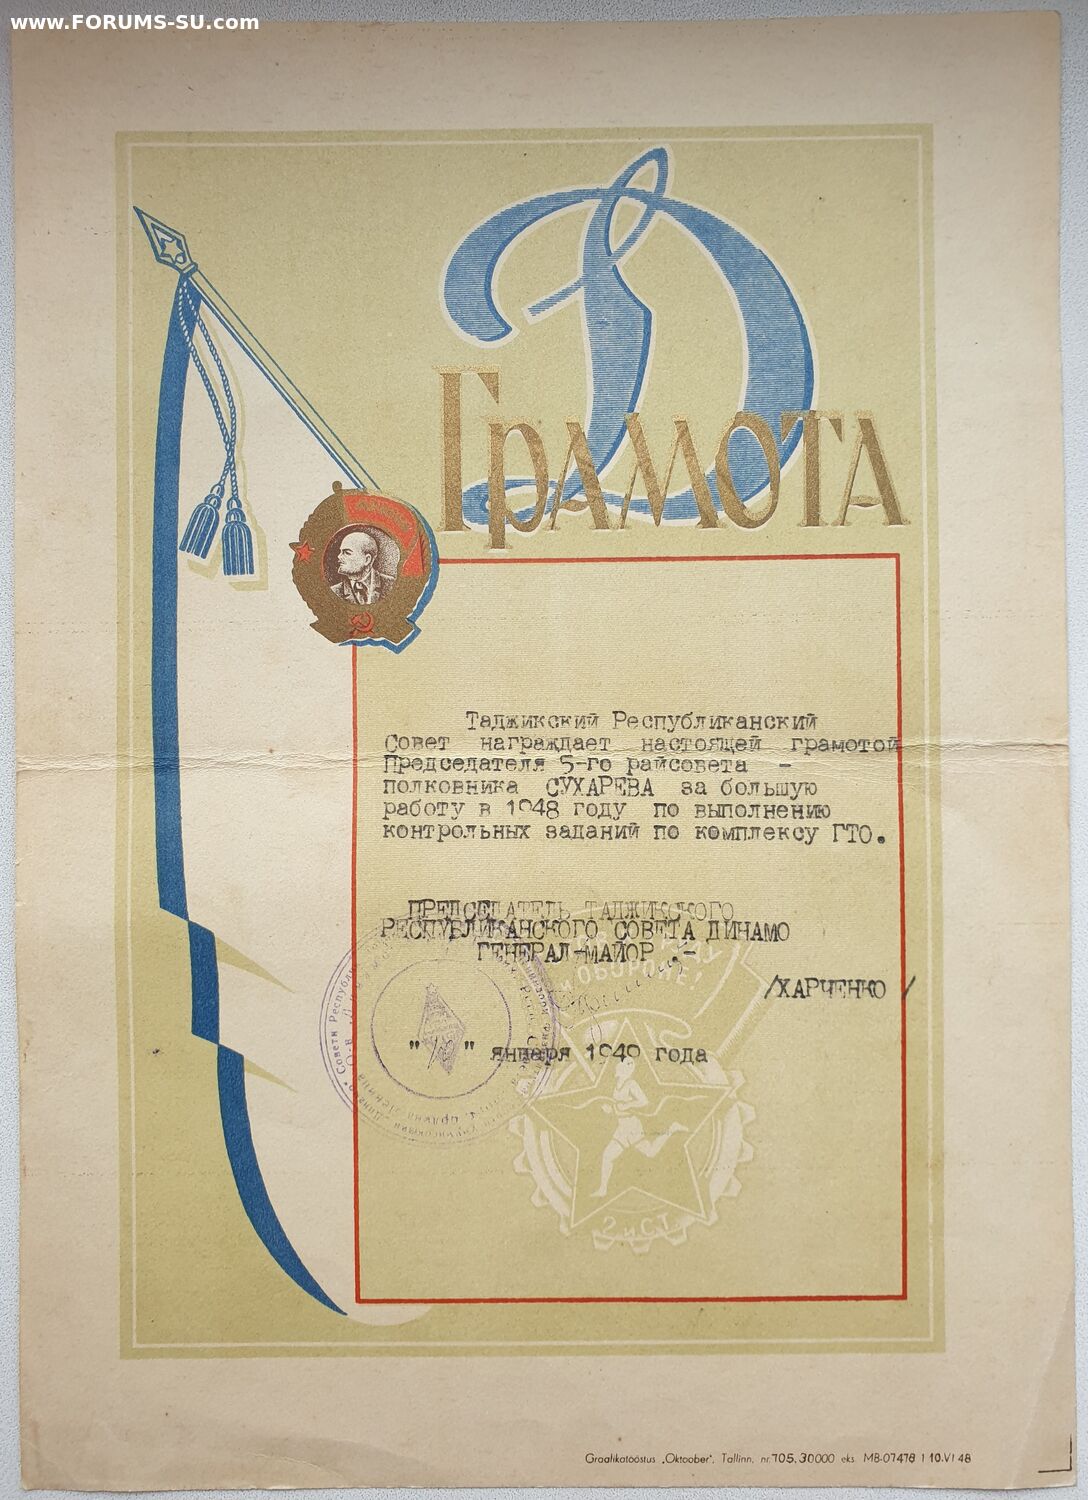 www.FORUMS-SU.com
Д
ГРАМОТА
ЛЕНИН
Таджикский Республиканский
Совет награждает настоящей грамотой
Председателя 5-го райсовета -
полковника СУХАРЕВА за большую
работу в 1948 году по выполнению
контрольных заданий по комплексу ГТО.
ПРЕДСЕДАТЕЛЬ ТАДЖИКСКОГО
РЕСПУБЛИКАНСКОГО СОВЕТА ДИНАМО
ГЕНЕРАЛ-МАЙОР .-
/ХАРЧЕНКО /
ОБОРОНЕ!
" " января 1949 года
2 и СТ.
Graafikatööstus „Oktoober", Tallinn, nr. 705. 30000 eks. MB-07478 1 10.VI 48